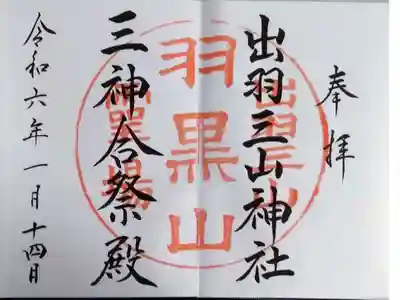 奉拝
出羽三山神社
羽黒山
三神合祭殿
令和六年一月十四日